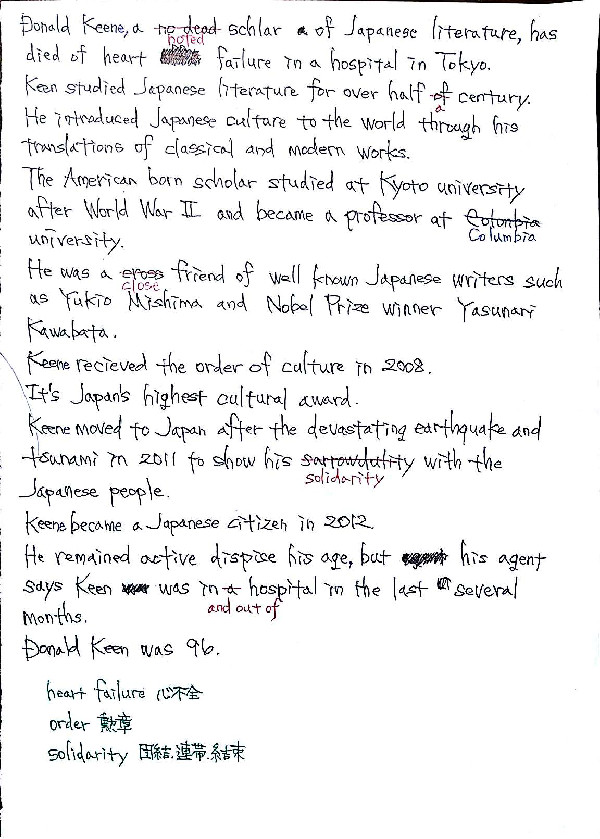 Donald Keene, a no dead schlar a of Japanese literature, has
noted
died of heart failure in a hospital in Tokyo.
Keen studied Japanese literature for over half of century.
a
He introduced Japanese culture to the world through his
translations of classical and modern works.
The American born scholar studied at Kyoto university
after World War II and became a professor at Colonbia
university. Columbia
He was a cross friend of well known Japanese writers such
close
as Yukio Mishima and Nobel Prize winner Yasunari
Kawabata.
Keene recieved the order of culture in 2008.
It's Japan's highest cultural award.
Keene moved to Japan after the devastating earthquake and
tsunami in 2011 to show his with the
solidarity
Japanese people.
Keene became a Japanese citizen in 2012
He remained active dispise his age, but his agent
says Keen was in a hospital in the last several
and out of
months.
Donald Keen was 96.
heart failure 心不全
order 勲章
solidarity 団結.連帯.結束